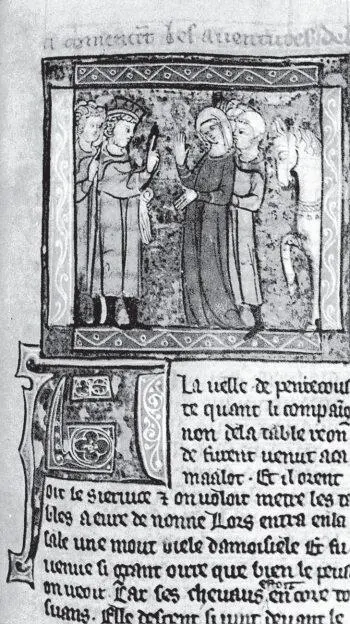 a comencēt les auentures del
A la uelle de pentecous
te quant li compaig
non dela table reon
de furent uenut a ca
maalot. Et il orent
oit le seruice ⁊ on uoloit metre les ta
bles a eure de nonne Lors entra enla
sale une mout biele damoisiele Et fu
uenue si grant oirre que bien le peut
on ueoir Car ses cheuaus estoit en core to
suans. Elle descent si uint deuant le